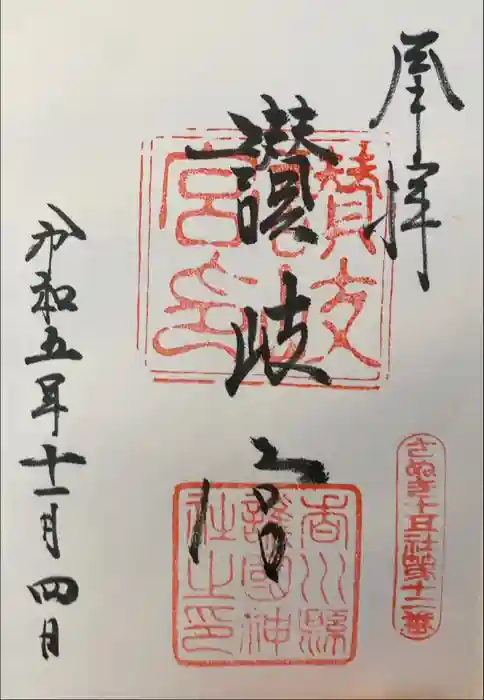 奉拝
讃岐宮
讃岐宮印
香川縣護國神社之印
さぬき十五社第十二番
令和五年十一月四日